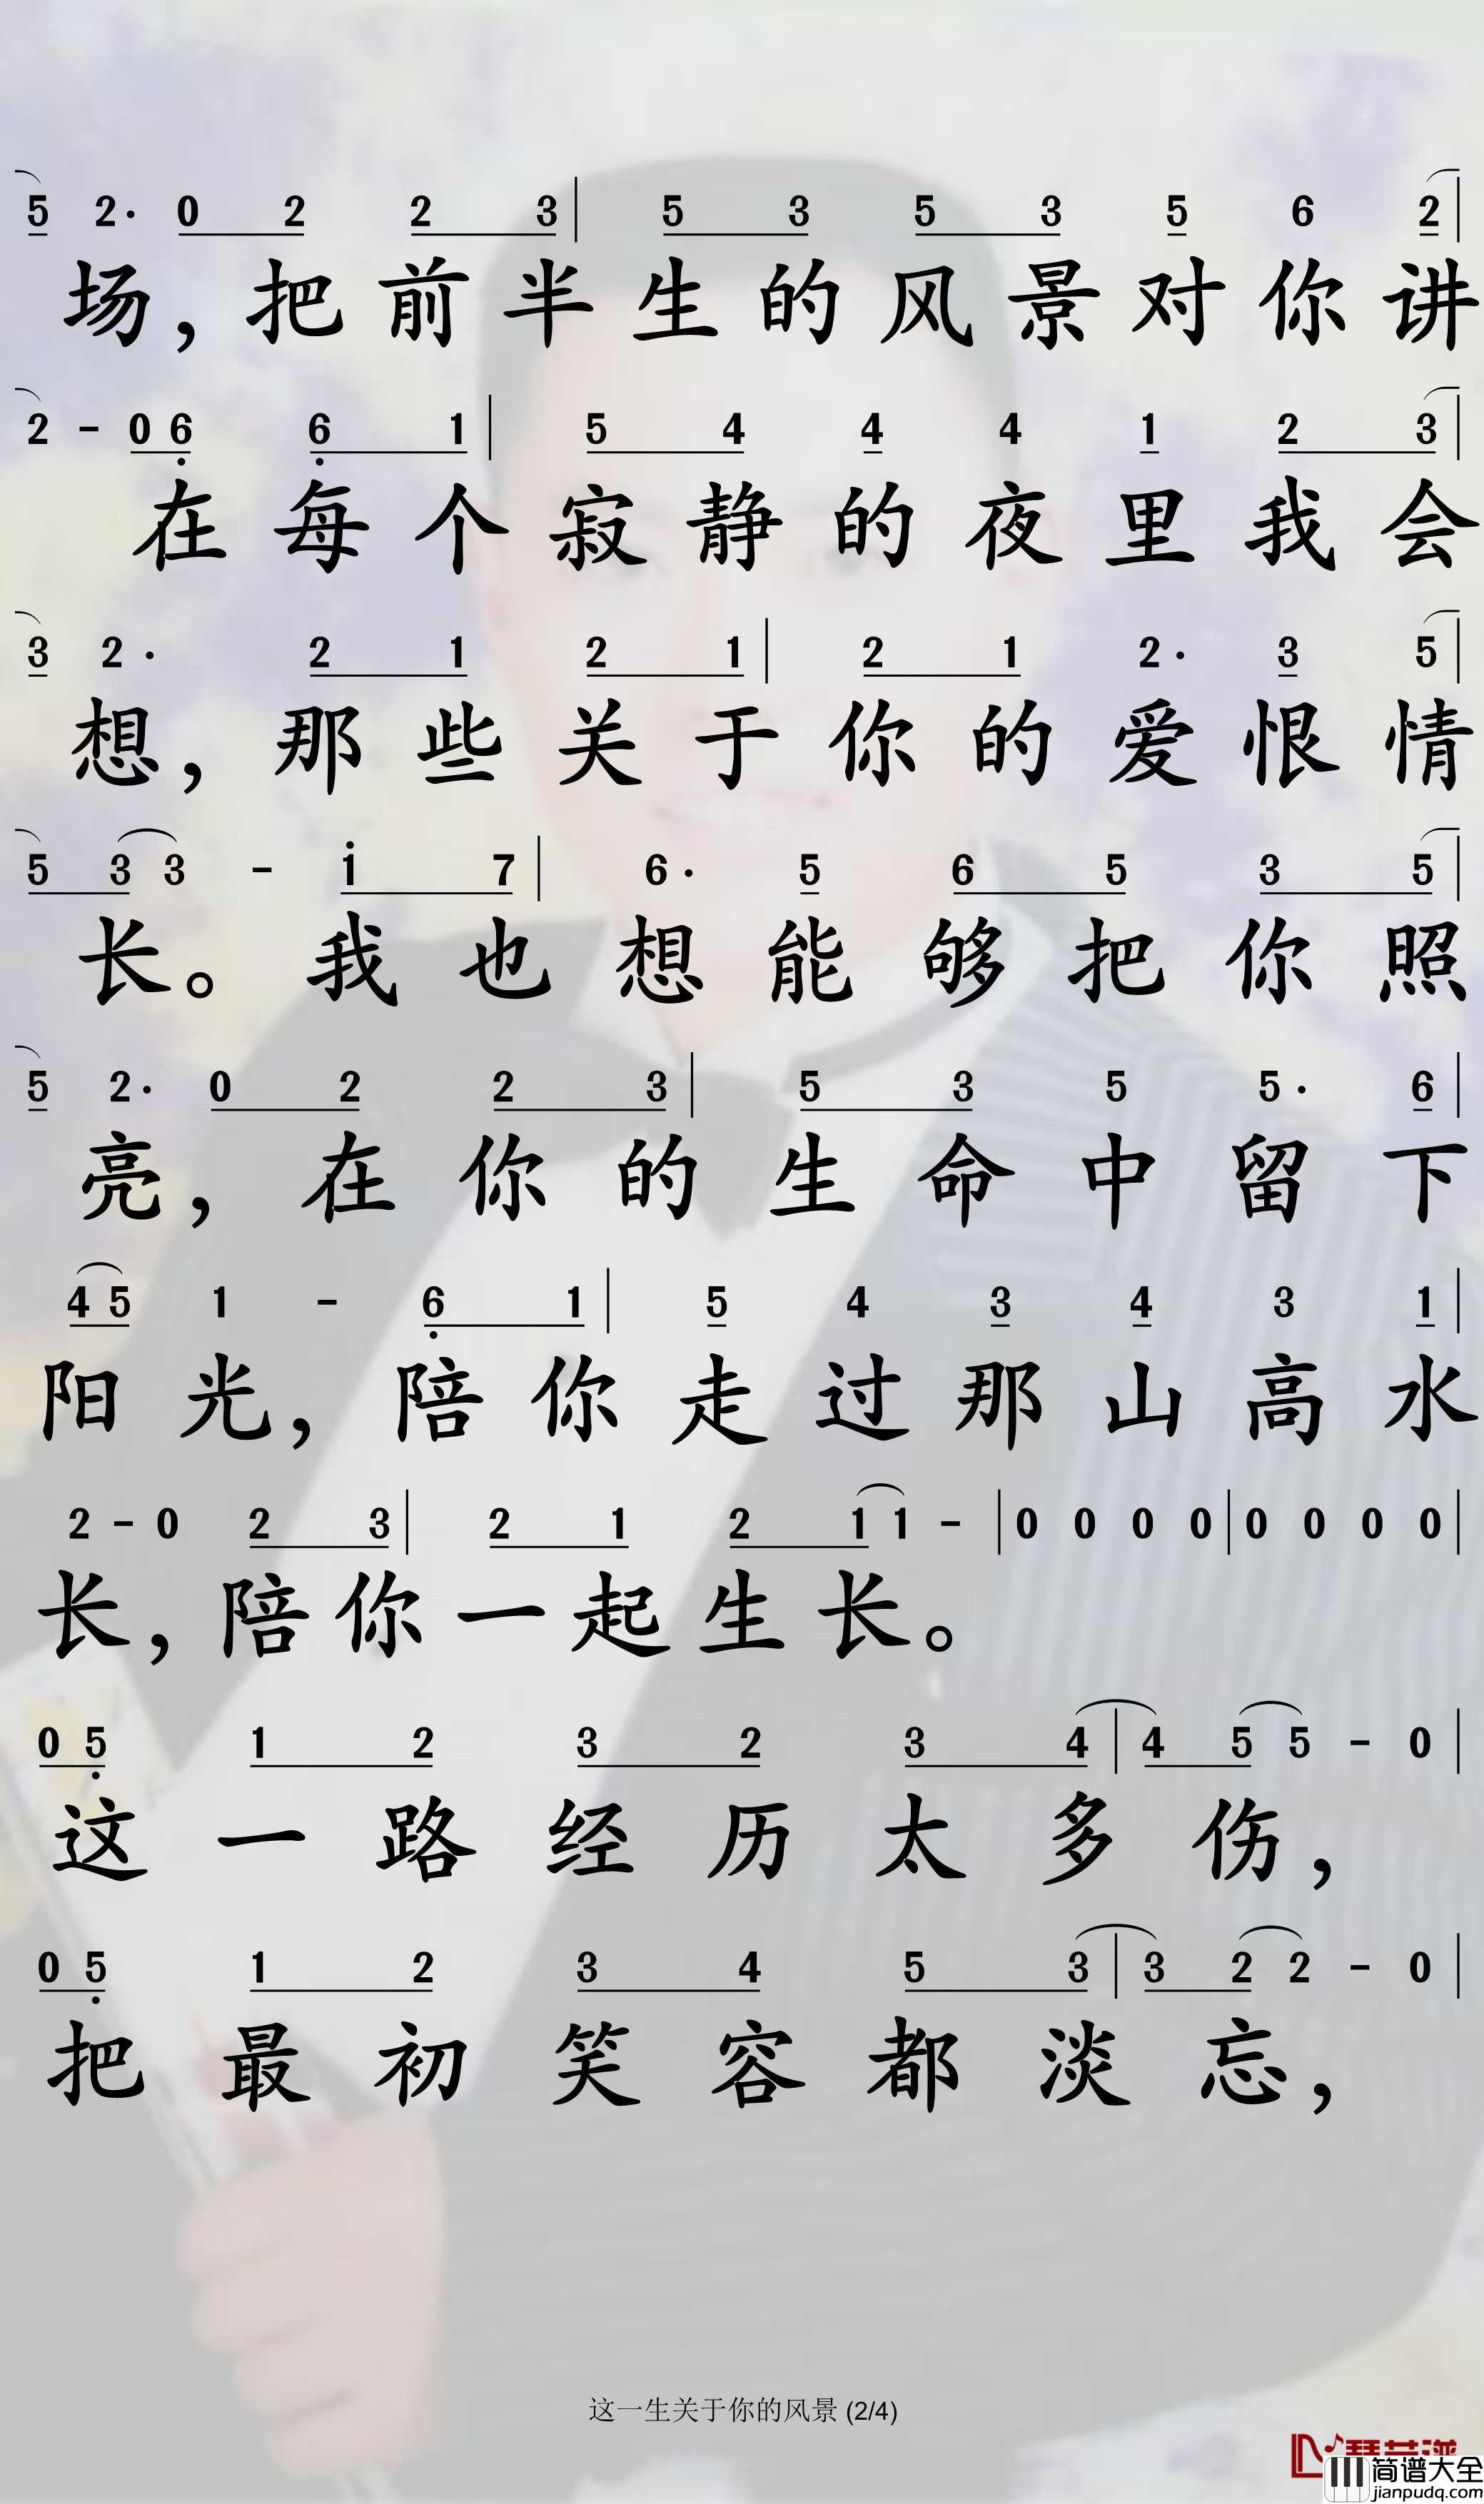 5 2· 0 2 2 3 | 5 3 5 3 5 6 2 |
场，把前半生的风景对你讲
2 - 0 6 6 1 | 5 4 4 4 1 2 3 |
在每个寂静的夜里我会
3 2· 2 1 2 1 | 2 1 2· 3 5 |
想，那些关于你的爱恨情
5 3 3 - 1 7 | 6· 5 6 5 3 5 |
长。我也想能够把你照
5 2· 0 2 2 3 | 5 3 5 5· 6 |
亮，在你的生命中留下
4 5 1 - 6 1 | 5 4 3 4 3 1 |
阳光，陪你走过那山高水
2 - 0 2 3 | 2 1 2 1 1 - | 0 0 0 0 | 0 0 0 0 |
长，陪你一起生长。
0 5 1 2 3 2 3 4 | 4 5 5 - 0 |
这一路经历太多伤，
0 5 1 2 3 4 5 3 | 3 2 2 - 0 |
把最初笑容都淡忘，
这一生关于你的风景 (2/4)
简谱大全
jianpudq.com